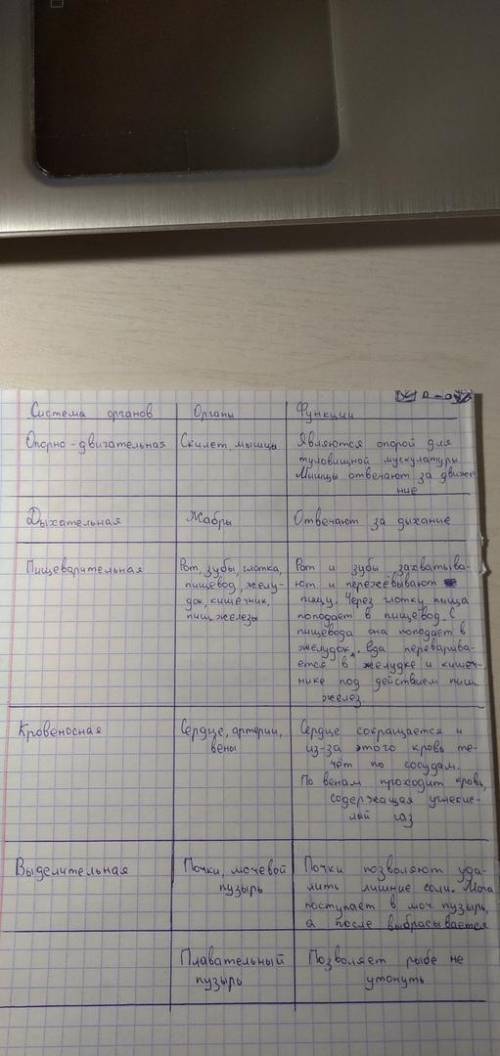 Система органов Органы Функции
Опорно-двигательная Скилет, мышцы Являются опорой для
туловищной мускулатуры.
Мышцы отвечают за движе-
ние
Дыхательная Жабры Отвечают за дыхание
Пищеварительная Рот, зубы, глотка, Рот и зубы захватыва-
пищевод, желу- ют и пережёвывают
док, кишечник, пищу. Через глотку пища
пищ. железы поподает в пищевод. С
пищевода она поподает в
желудок. Еда переварива-
ется в желудке и кишеч-
нике под действием пищ.
желез.
Кровеносная Сердце, артерии, Сердце сокращается и
вены из-за этого кровь те-
чёт по сосудам.
По венам проходит кровь,
содержащая углекис-
лый газ
Выделительная Почки, мочевой Почки позволяют уда-
пузырь лить лишние соли. Моча
поступает в моч. пузырь,
а после выбрасывается
Плавательный Позволяет рыбе не
пузырь утонуть